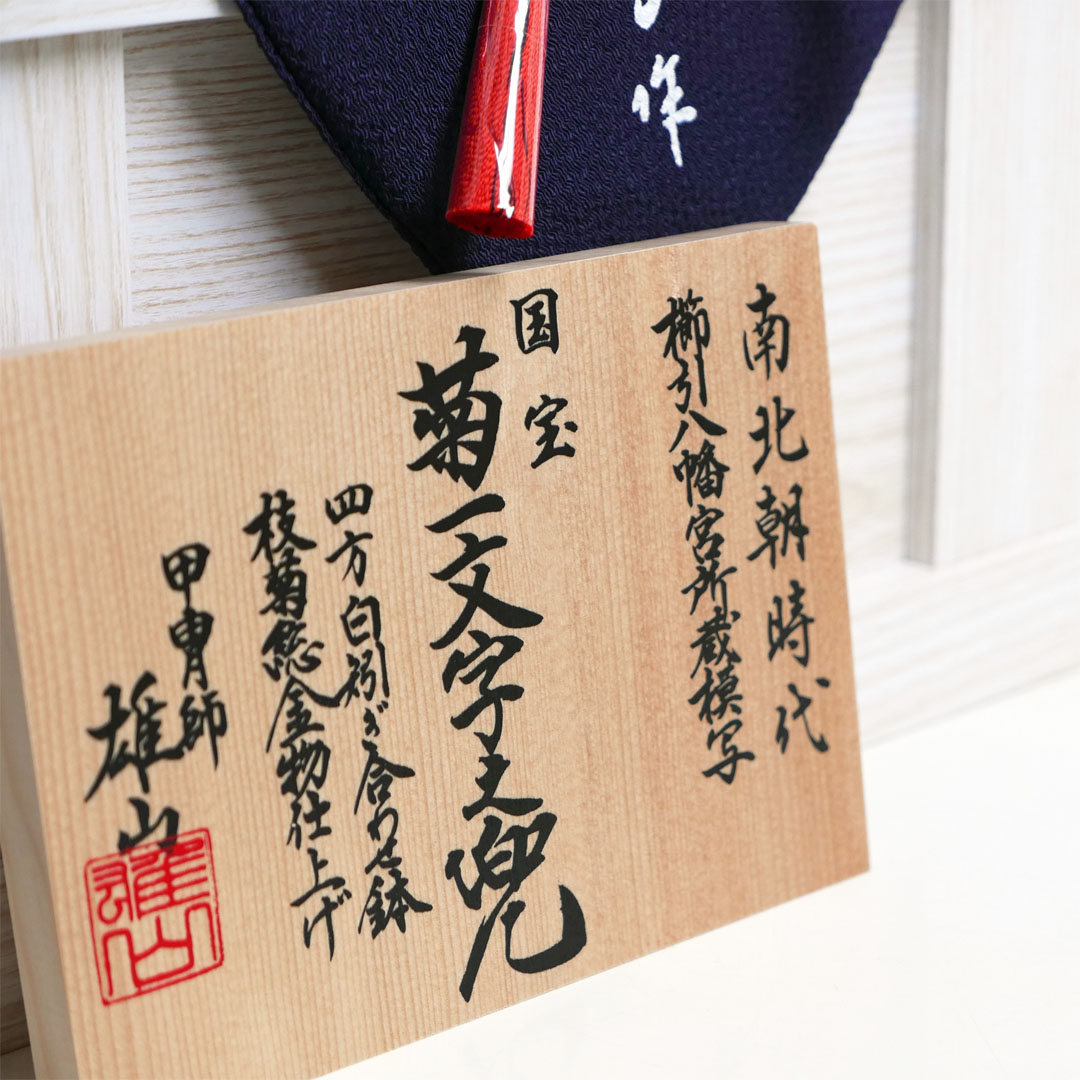 作
南北朝時代
櫛引八幡宮所蔵模写
国宝
菊一文字之兜
四方白矧ぎ合わせ鉢
枝菊総金物仕上げ
甲冑師
雄山
雄山